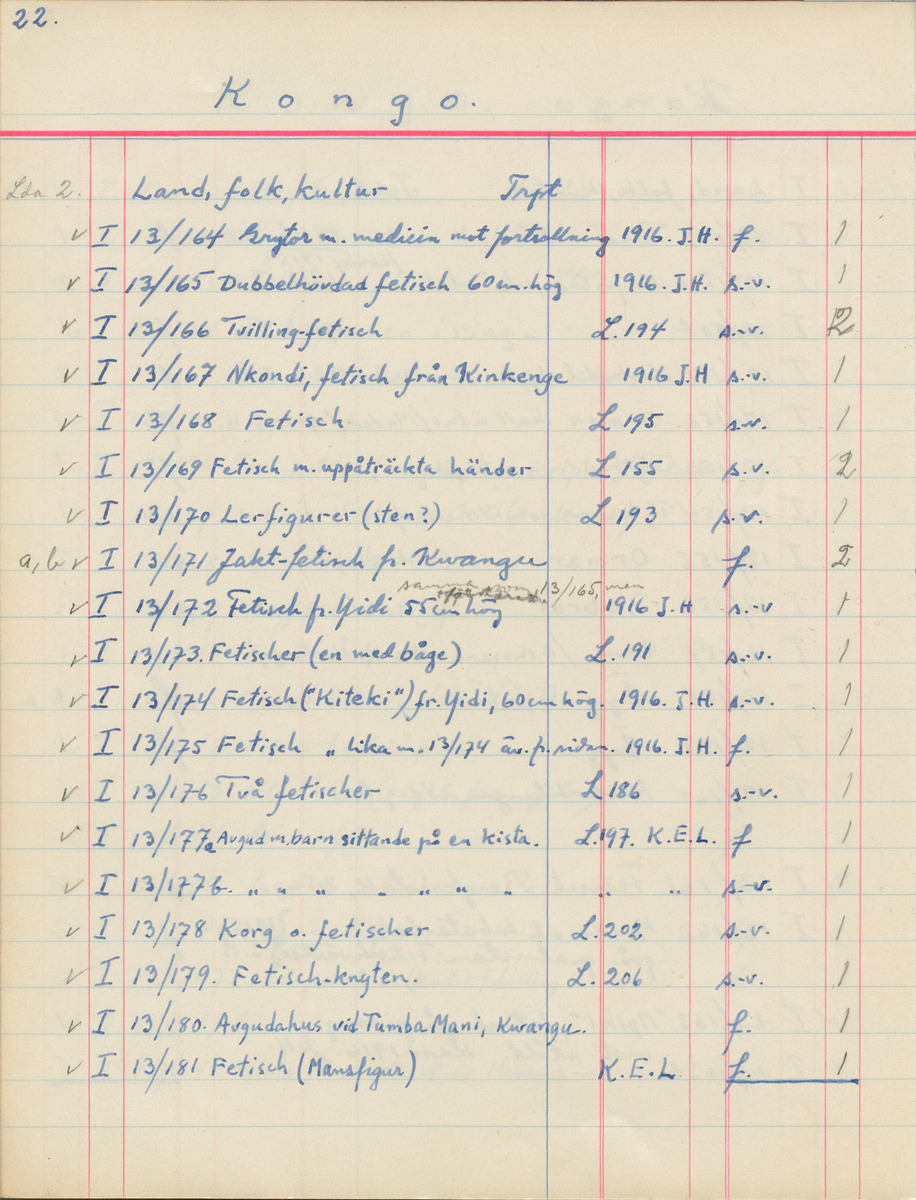 22.
Kongo.
Lda 2. Land, folk, kultur Trpt
v I 13/164 Grytor m. medicin mot förtrollning 1916. J.H. f. 1
v I 13/165 Dubbelhövdad fetisch 60 cm. hög 1916. J.H. s.-v. 1
v I 13/166 Tvilling-fetisch L. 194 s.-v. 2
v I 13/167 Nkondi, fetisch från Kinkenge 1916 J.H s.-v. 1
v I 13/168 Fetisch L 195 s.v. 1
v I 13/169 Fetisch m. uppåträckta händer L 155 s.v. 2
v I 13/170 Lerfigurer (sten?) L 193 s.-v. 1
a, b v I 13/171 Jakt-fetisch fr. Kwangu f. 2
samma som 13/165, men
v I 13/172 Fetisch fr. Yidi 55 cm hög 1916 J.H s.-v 1
v I 13/173. Fetischer (en med båge) L. 191 s.-v. 1
v I 13/174 Fetisch ("Kiteki") fr. Yidi, 60 cm hög. 1916. J.H. s.-v. 1
v I 13/175 Fetisch „ lika m. 13/174 äv. fr. sidan. 1916. J.H. f. 1
v I 13/176 Två fetischer L 186 s.-v. 1
v I 13/177a Avgud m. barn sittande på en kista. L. 197. K.E.L. f 1
v I 13/177b. „ „ „ „ „ „ „ „ „ s.-v. 1
v I 13/178 Korg o. fetischer L. 202 s.-v. 1
v I 13/179. Fetisch-knyten. L. 206 s.-v. 1
v I 13/180. Avgudahus vid Tumba Mani, Kwangu. f. 1
v I 13/181 Fetisch (Mansfigur) K.E.L f. 1